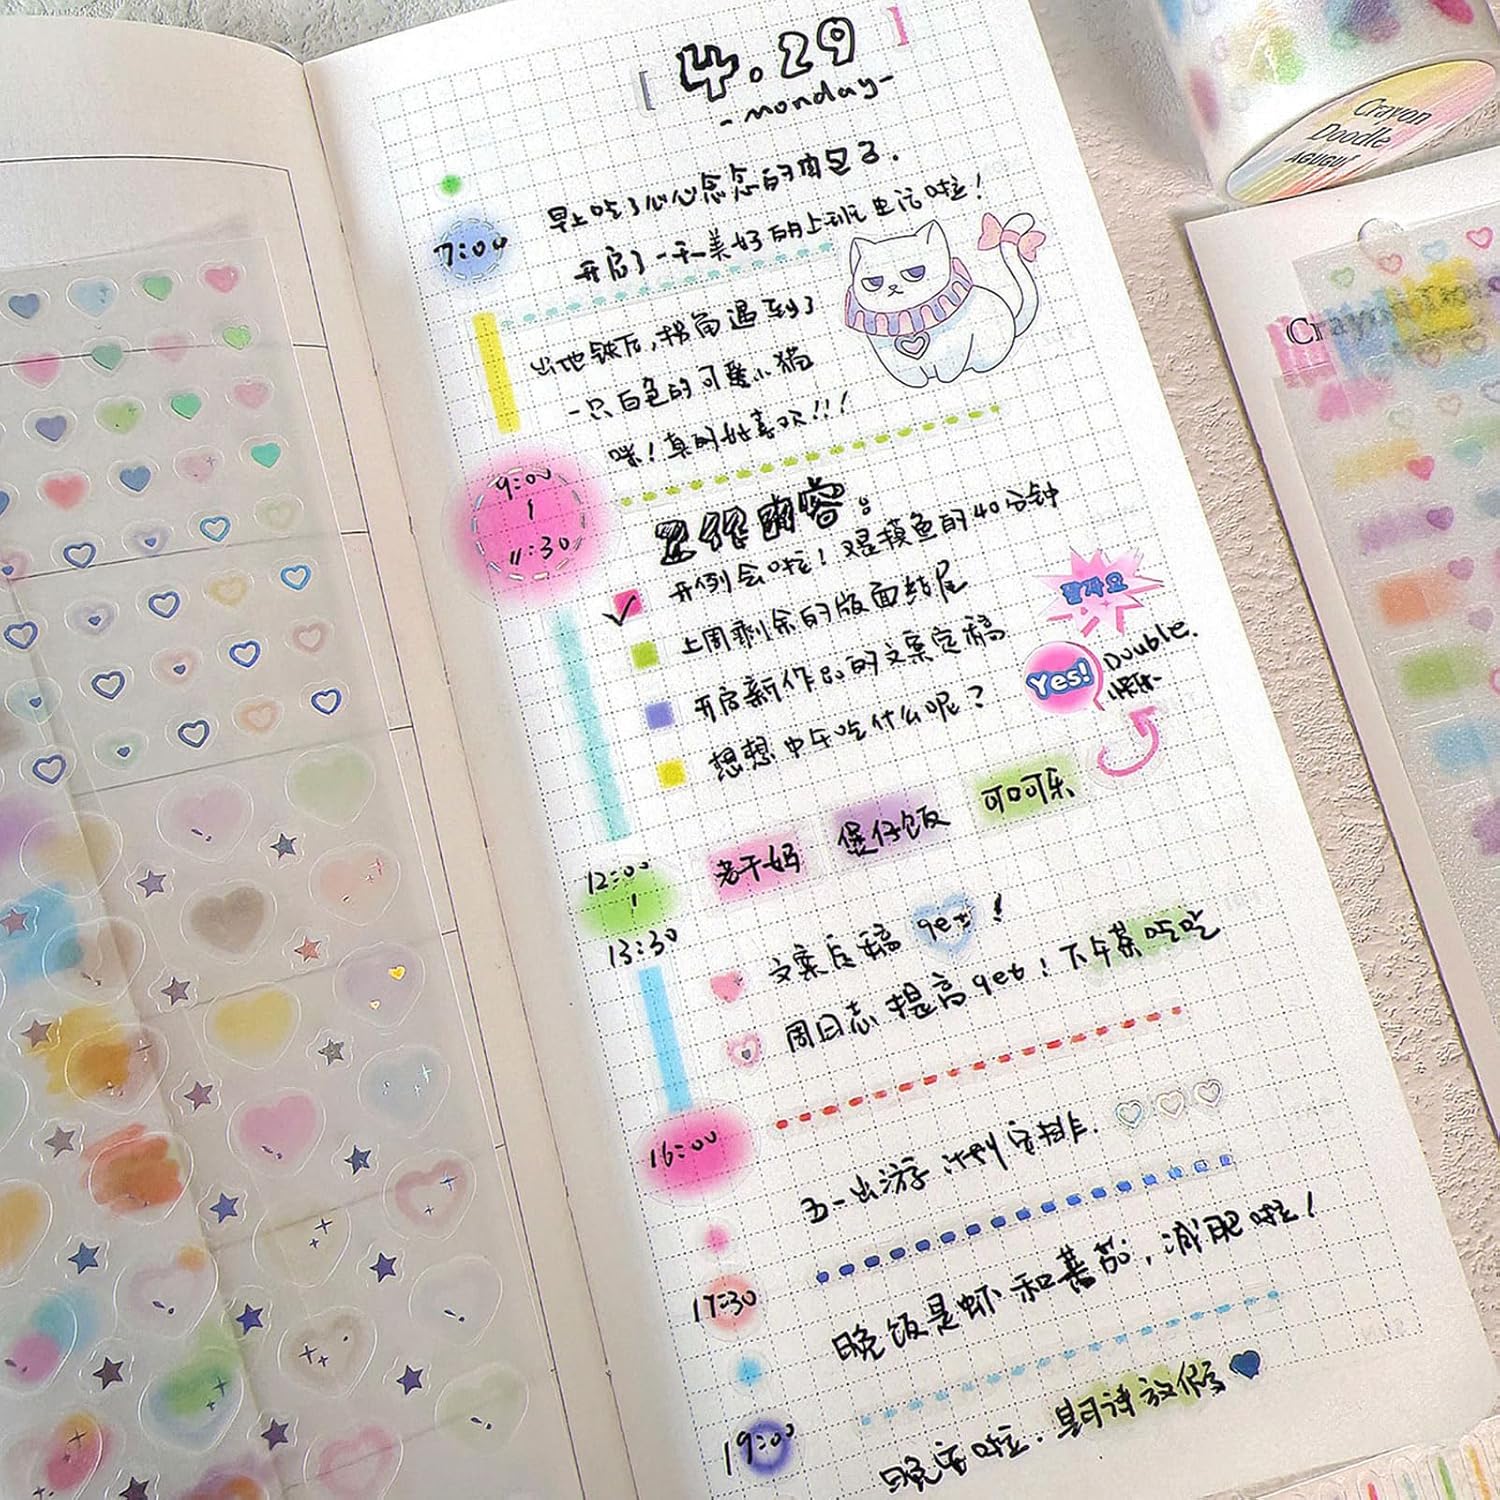 4.29
-monday-
早上吃了心心念念的肉包了.
7:00
开启了一天美好的上班生活啦!
出地铁后,拐角遇到了
一只白色的可爱小猫
咪!真的好喜欢!!!
9:00
11:30
工作内容:
开例会啦!又是摸鱼的40分钟
上周剩余的版面结尾
开启新作品的文案定稿
想想中午吃什么呢?
잘자요
Yes!
Double.
12:00
13:30
老干妈
煲仔饭
可口可乐
文案定稿 get!
周日志提高get!下午茶吃吃
16:00
五一出游计划安排.
17:30
晚饭是虾和蕃茄,减肥啦!
19:00
晚安啦.期待放假
Crayon
Doodle
AGUGUF
Crayon